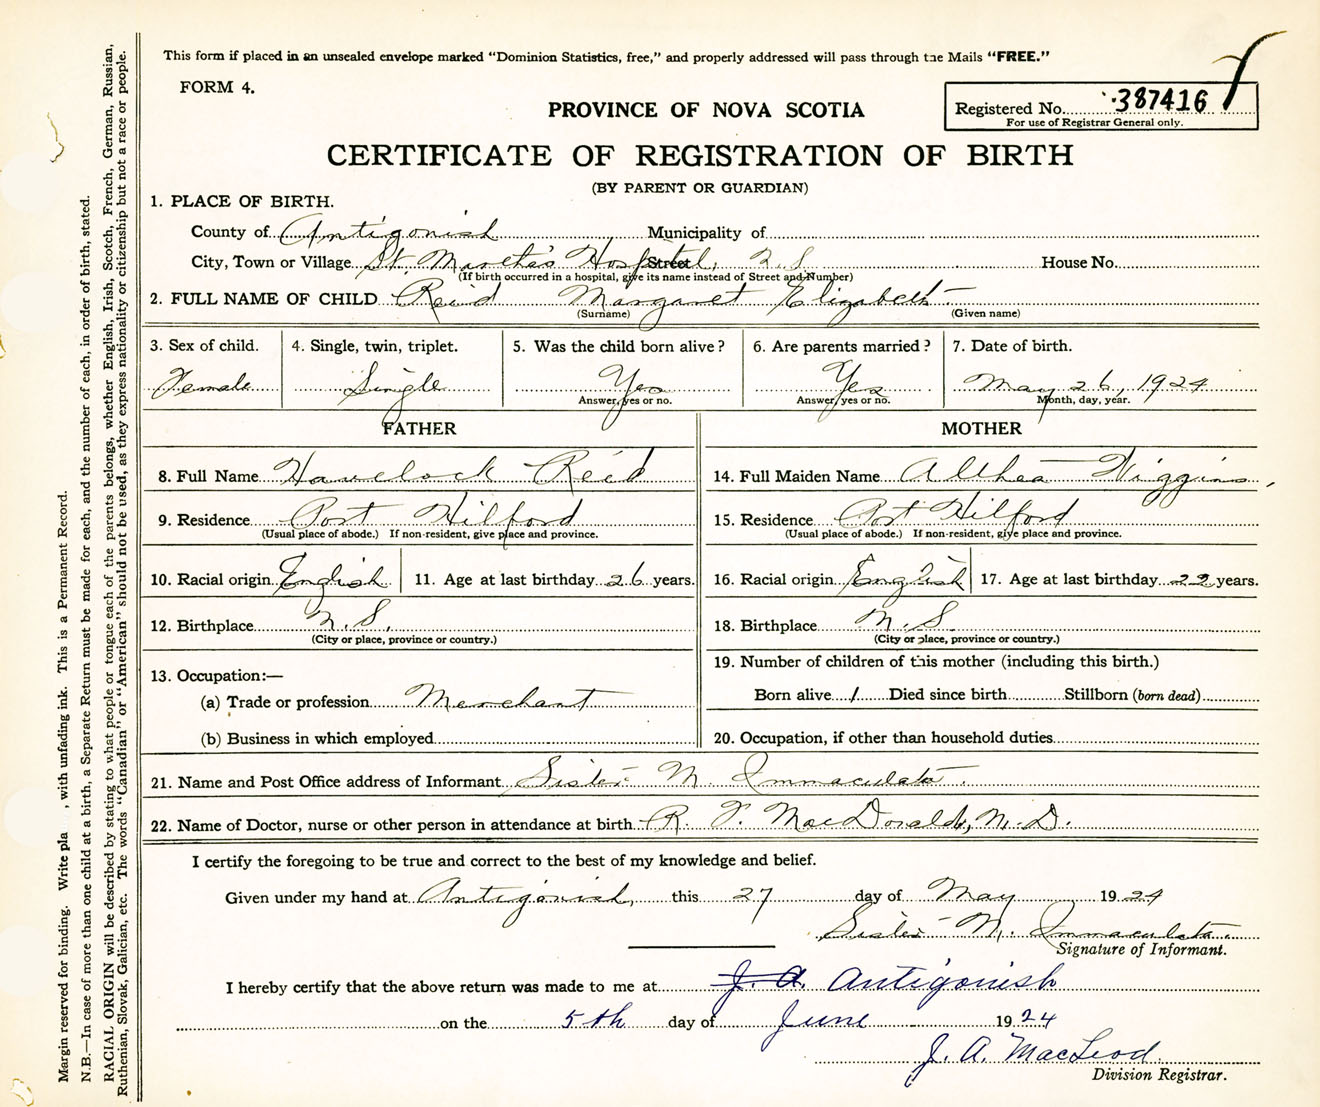 This form if placed in an unsealed envelope marked "Dominion Statistics, free," and properly addressed will pass through the Mails "FREE."
FORM 4.
PROVINCE OF NOVA SCOTIA
Registered No. 387416
For use of Registrar General only.
CERTIFICATE OF REGISTRATION OF BIRTH
(BY PARENT OR GUARDIAN)
1. PLACE OF BIRTH.
County of Antigonish Municipality of
City, Town or Village St. Martha's Hospital, Street N.S. House No.
(If birth occurred in a hospital, give its name instead of Street and Number)
2. FULL NAME OF CHILD Reid Margaret Elizabeth
(Surname) (Given name)
3. Sex of child. 4. Single, twin, triplet. 5. Was the child born alive? 6. Are parents married? 7. Date of birth.
Female Single Yes Yes May 26, 1924
Answer, yes or no. Answer, yes or no. Month, day, year.
FATHER MOTHER
8. Full Name Havelock Reid 14. Full Maiden Name Althea Wiggins
9. Residence Port Hilford 15. Residence Port Hilford
(Usual place of abode.) If non-resident, give place and province. (Usual place of abode.) If non-resident, give place and province.
10. Racial origin English 11. Age at last birthday 26 years. 16. Racial origin English 17. Age at last birthday 22 years.
12. Birthplace N.S. 18. Birthplace N.S.
(City or place, province or country.) (City or place, province or country.)
13. Occupation:— 19. Number of children of this mother (including this birth.)
(a) Trade or profession Merchant Born alive 1 Died since birth Stillborn (born dead)
(b) Business in which employed 20. Occupation, if other than household duties
21. Name and Post Office address of Informant Sister M. Immaculata.
22. Name of Doctor, nurse or other person in attendance at birth R. F. MacDonald, M.D.
I certify the foregoing to be true and correct to the best of my knowledge and belief.
Given under my hand at Antigonish, this 27 day of May 1924
Sister M. Immaculata
Signature of Informant.
I hereby certify that the above return was made to me at J. A. Antigonish
on the 5th day of June 1924
J. A. MacLeod
Division Registrar.
Margin reserved for binding. Write pla , with unfading ink. This is a Permanent Record.
N.B.—In case of more than one child at a birth, a Separate Return must be made for each, and the number of each, in order of birth, stated.
RACIAL ORIGIN will be described by stating to what people or tongue each of the parents belongs, whether English, Irish, Scotch, French, German, Russian,
Ruthenian, Slovak, Galician, etc. The words "Canadian" or "American" should not be used, as they express nationality or citizenship but not a race or people.